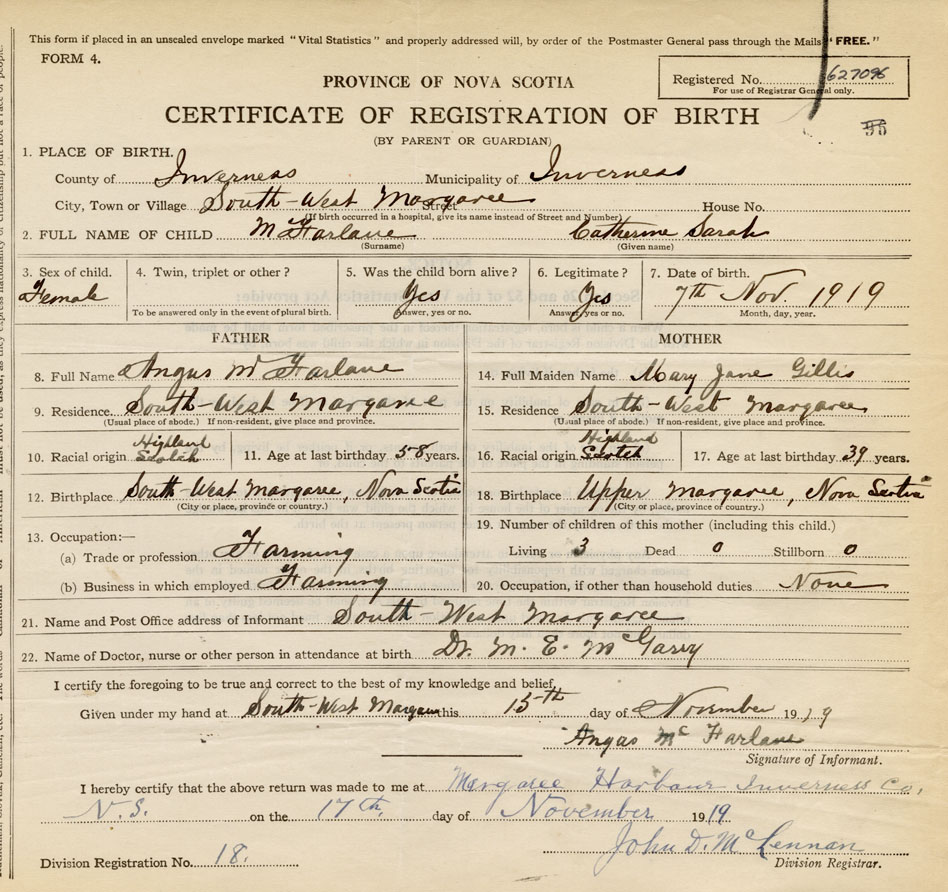 This form if placed in an unsealed envelope marked "Vital Statistics" and properly addressed will, by order of the Postmaster General pass through the Mails "FREE."
FORM 4.
PROVINCE OF NOVA SCOTIA
Registered No. 627096
For use of Registrar General only.
CERTIFICATE OF REGISTRATION OF BIRTH
95
(BY PARENT OR GUARDIAN)
1. PLACE OF BIRTH.
County of Inverness Municipality of Inverness
City, Town or Village South-West Margaree Street House No.
(If birth occurred in a hospital, give its name instead of Street and Number)
2. FULL NAME OF CHILD McFarlane Catherine Sarah
(Surname) (Given name)
3. Sex of child. 4. Twin, triplet or other? 5. Was the child born alive? 6. Legitimate? 7. Date of birth.
Female Yes Yes 7th Nov. 1919
To be answered only in the event of plural birth. Answer, yes or no. Answer, yes or no. Month, day, year.
FATHER MOTHER
8. Full Name Angus McFarlane 14. Full Maiden Name Mary Jane Gillis
9. Residence. South-West Margaree 15. Residence South-West Margaree
(Usual place of abode.) If non-resident, give place and province. (Usual place of abode.) If non-resident, give place and province.
10. Racial origin Highland Scotch 11. Age at last birthday 58 years. 16. Racial origin Highland Scotch 17. Age at last birthday 39 years.
12. Birthplace South-West Margaree, Nova Scotia 18. Birthplace Upper Margaree, Nova Scotia
(City or place, province or country.) (City or place, province or country.)
13. Occupation:— 19. Number of children of this mother (including this child.)
(a) Trade or profession Farming Living 3 Dead 0 Stillborn 0
(b) Business in which employed Farming 20. Occupation, if other than household duties None
21. Name and Post Office address of Informant South-West Margaree
22. Name of Doctor, nurse or other person in attendance at birth Dr. M. E. McGarry
I certify the foregoing to be true and correct to the best of my knowledge and belief,
Given under my hand at South-West Margaree this 15th day of November 1919
Angus McFarlane
Signature of Informant.
I hereby certify that the above return was made to me at Margaree Harbour Inverness Co.,
N.S. on the 17th. day of November 1919
John D. McLennan
Division Registration No. 18. Division Registrar.